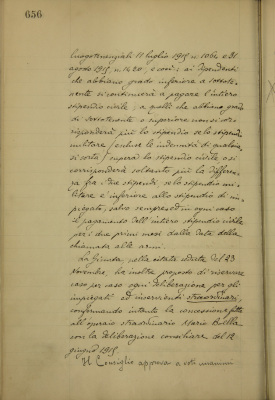 656
Luogotenenziali 11 luglio 1915 n. 1064 e 31
agosto 1915 n. 1420, e cioè: ai dipendenti
che abbiano grado inferiore a sottote-
nente si continuerà a pagare l'intiero
stipendio civile; a quelli che abbiano grado
di sottotenente o superiore non si cor-
risponderà più lo stipendio se lo stipendio
militare (escluse le indennità di qualsia-
si sorta) supera lo stipendio civile o si
corrisponderà soltanto più la differen-
za fra i due stipendi se lo stipendio mi-
litare è inferiore allo stipendio di im-
piegato, salvo sempre ed in ogni caso
il pagamento dell'intiero stipendio civile
per i due primi mesi dalla data della
chiamata alle armi.
La Giunta, nella citata seduta del 23
Novembre, ha inoltre proposto di riservare
caso per caso ogni deliberazione per gli
impiegati ed inservienti straordinari,
confermando intanto la concessione fatta
all'operaio straordinario Mario
con la deliberazione consiliare del 12
giugno 1915.
Il Consiglio approva a voti unanimi